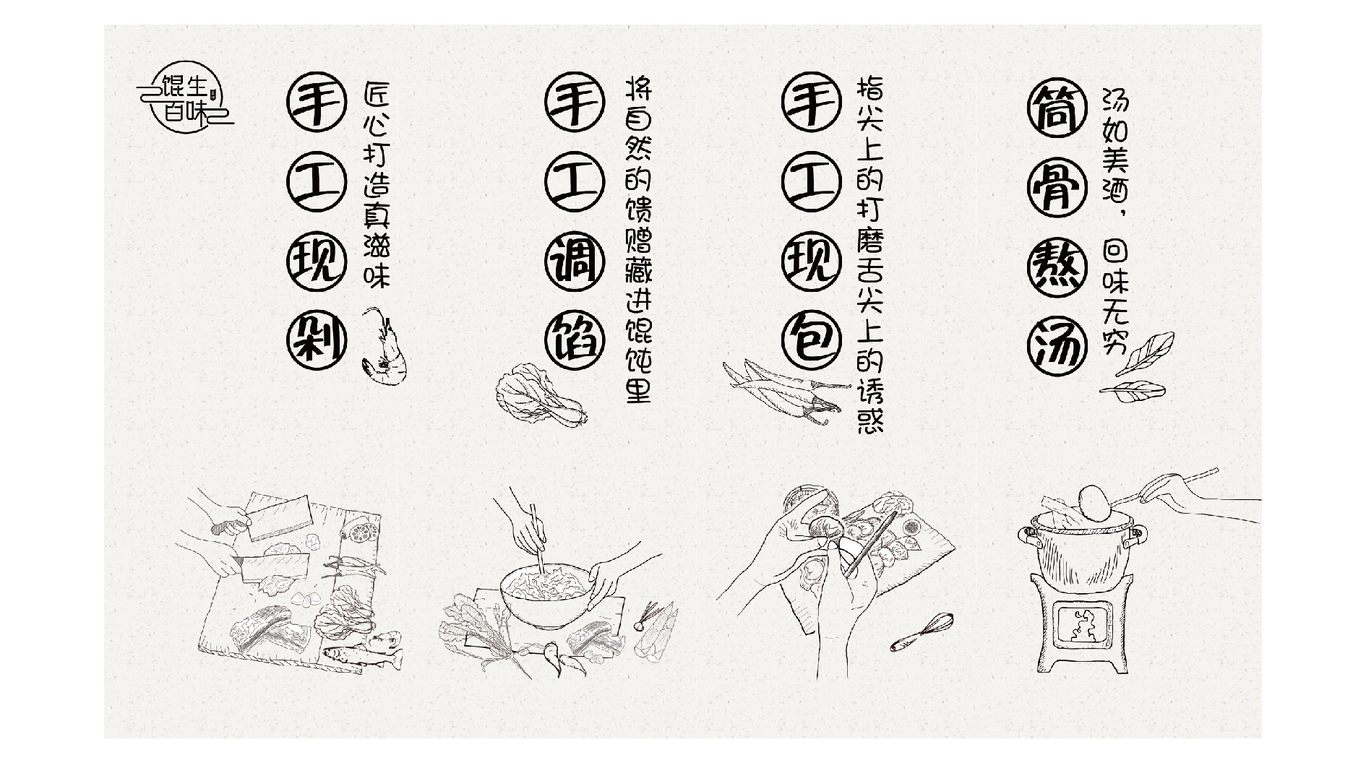 馄生
百味
手工现剁
匠心打造真滋味
手工调馅
将自然的馈赠藏进馄饨里
手工现包
指尖上的打磨舌尖上的诱惑
筒骨熬汤
汤如美酒，回味无穷